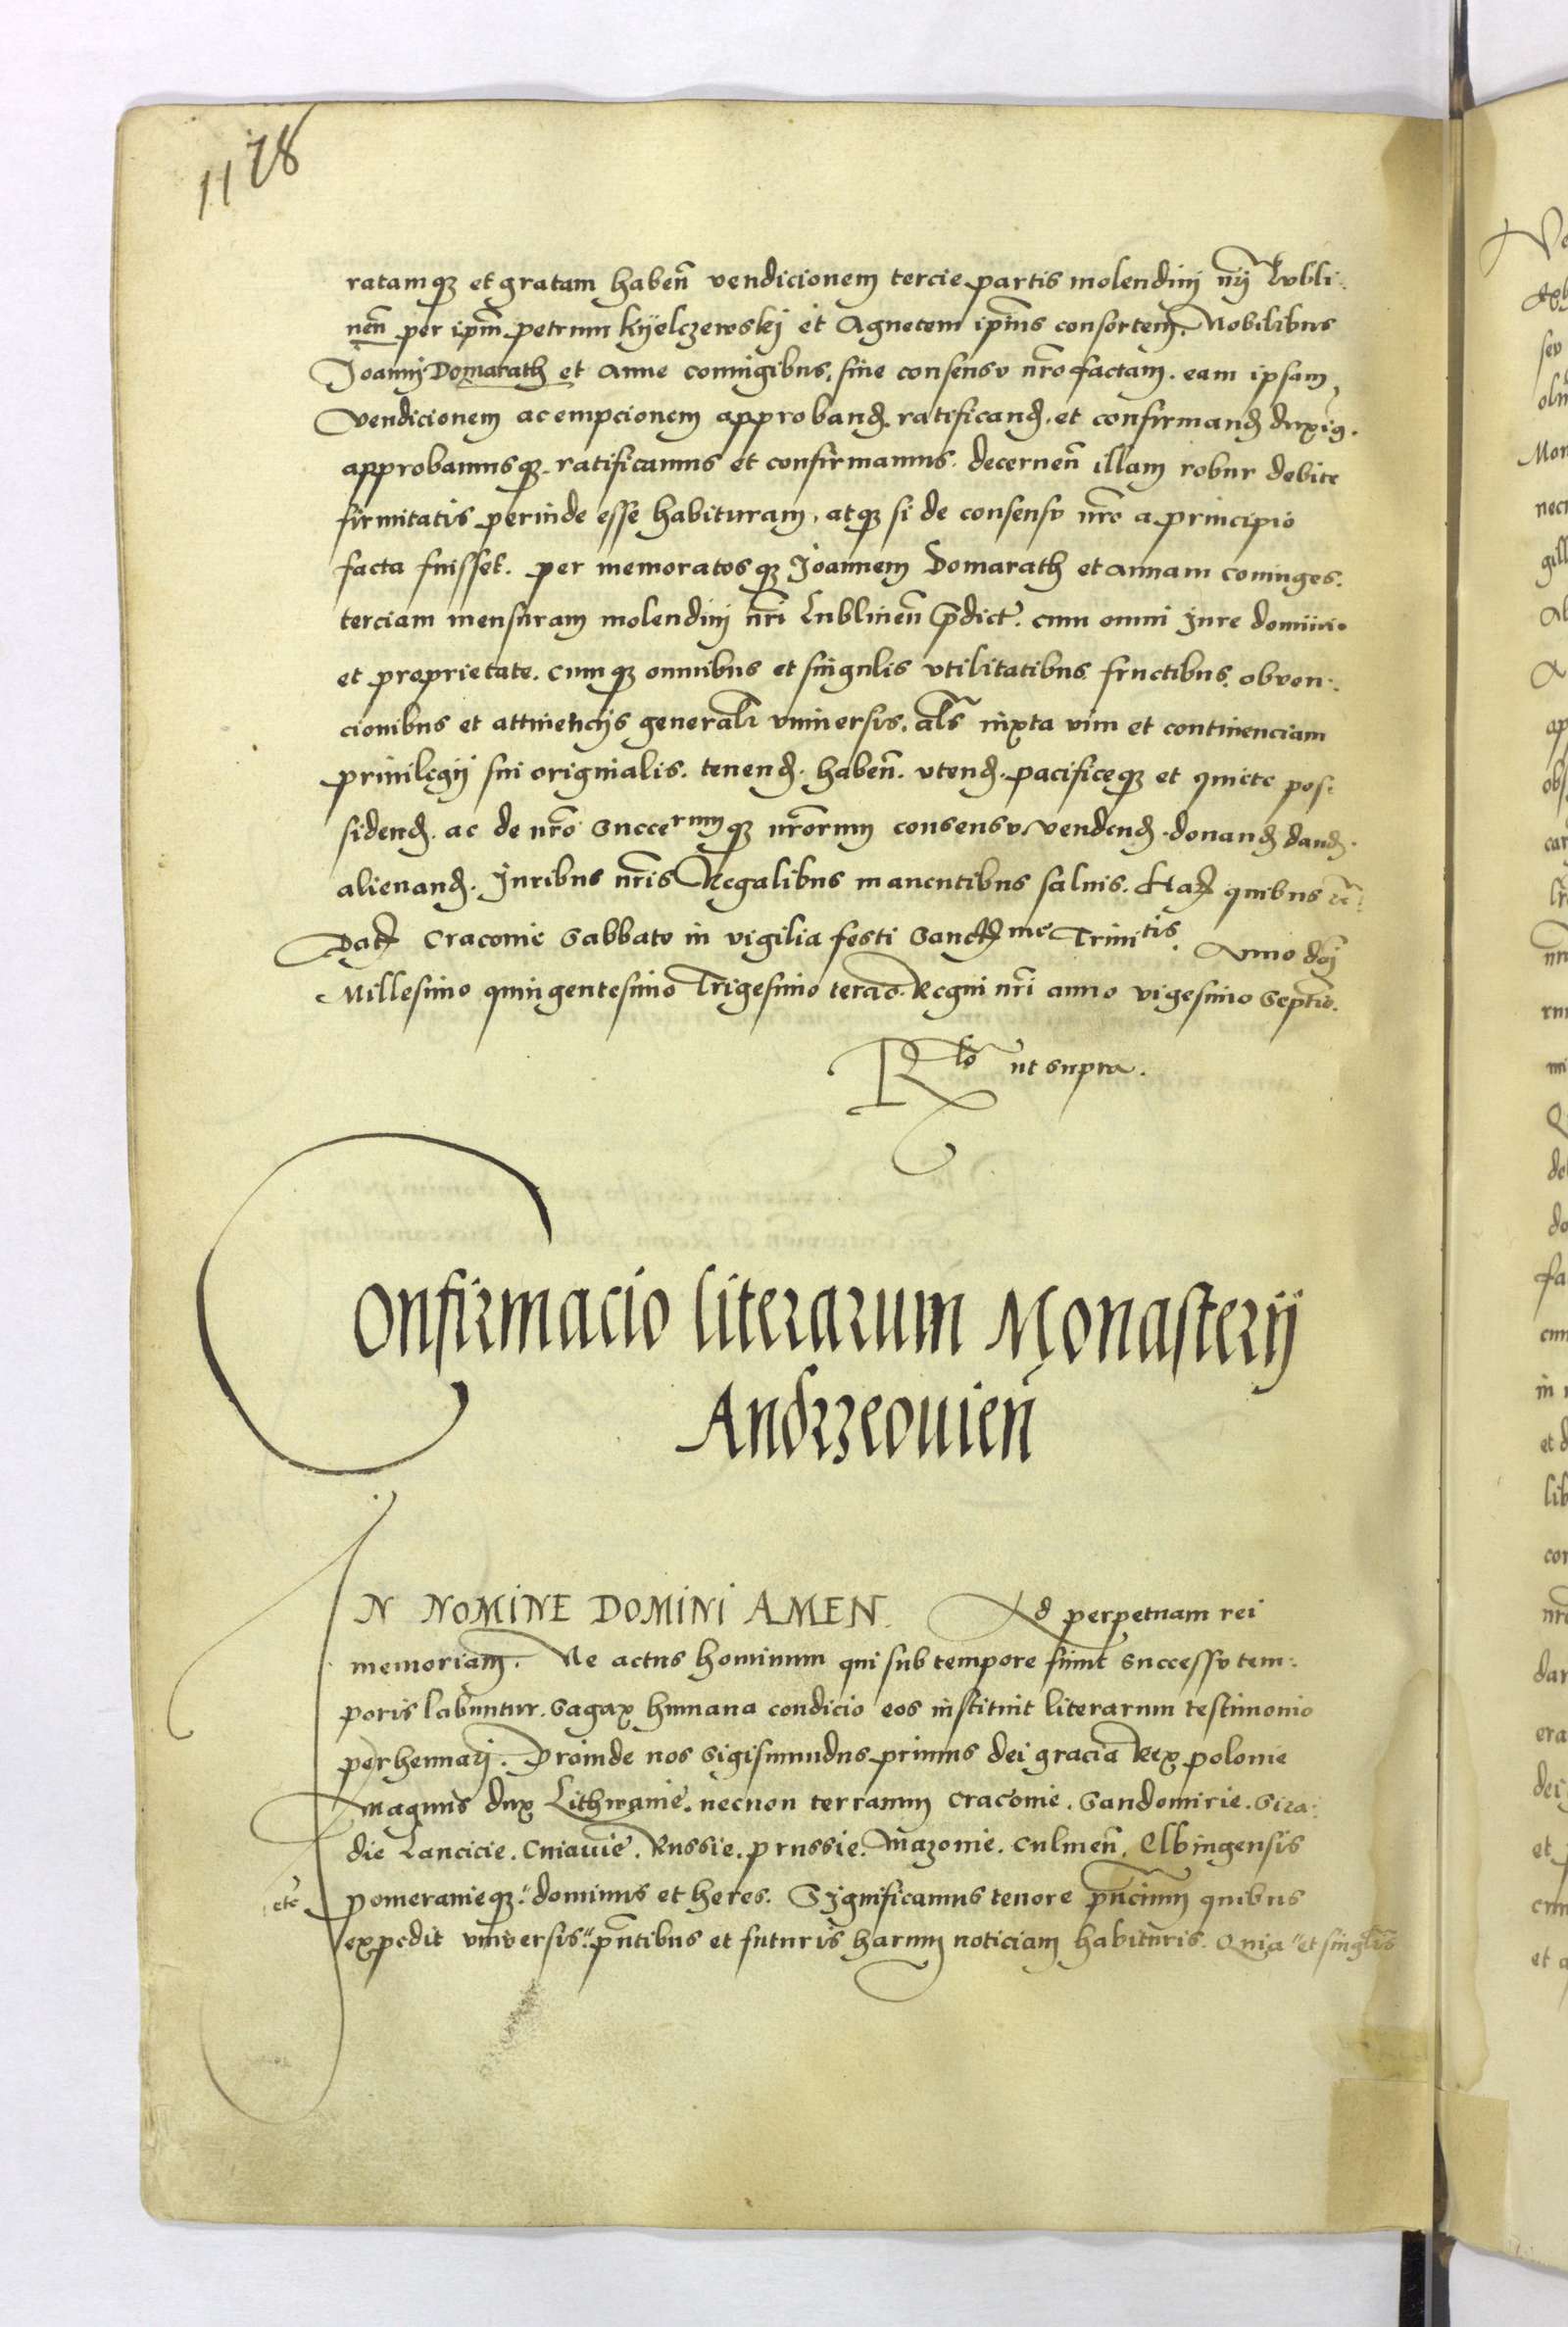 1178
ratamq3 et gratam habeñ vendicionem tercie partis molendinj nrĩ Lubli:
neñ per ipm̃ petrum Kijelczewskj et Agnetem ipius consortem. Nobilibus
Joannj Domarath et Anne coniugibus, sine consensu nrõ factam. eam ipsam
vendicionem ac empcionem approband. ratificand. et confirmand duxi9.
approbamusq3 ratificamus et confirmamus. decerneñ illam robur debite
firmitatis perinde esse habituram, atq3 si de consensu nrõ a principio
facta fuisset. per memoratosq3 Joannem Domarath et annam coniuges.
terciam mensuram molendinj nrĩ Lublineñ p̃dict. cum omni Jure dominio
et proprietate. cumq3 omnibus et singulis vtilitatibus fructibus, obuen:
cionibus et attinencijs generalr̃ vniuersis. als̃ iuxta vim et continenciam
priuilegij sui originalis. tenend. habeñ. vtend. pacificeq3 et quiete pos:
sidend. ac de nrõ Succerumq3 nrõrum consensu vendend. donand dand.
alienand. Juribus nrĩs Regalibus manentibus saluis. Har quibus
Dat Craconie Sabbato in vigilia festi Sanctme Trinitis. Anno dnj
Millesimo quingentesimo Trigesimo tercio. Regni nrĩ anno vigesimo Septio.
Rlo ut supra.
Confirmacio literarum Monasterij
Andrzeouieñ
IN NOMINE DOMINI AMEN. Ad perpetuam rei
memoriam. Ne actus hominum qui sub tempore fiunt successu tem:
poris labuntur. Sagax humana condicio eos instituit literarum testimonio
perhennarj. Proinde nos Sigismundus primus dei gracia Rex polonie
Magnus dux Lithwanie. necnon terrarum Craconie. Sandomirie. Sira:
die Lancicie. Cuiauie. Russie. prussie. Mazouie. Culmeñ. Elbingensis
etc pomeranieq3" dominus et heres. Significamus tenore pñcium quibus
expedit vniuersis" pñtibus et futuris harum noticiam habituris. Quia "et singlis